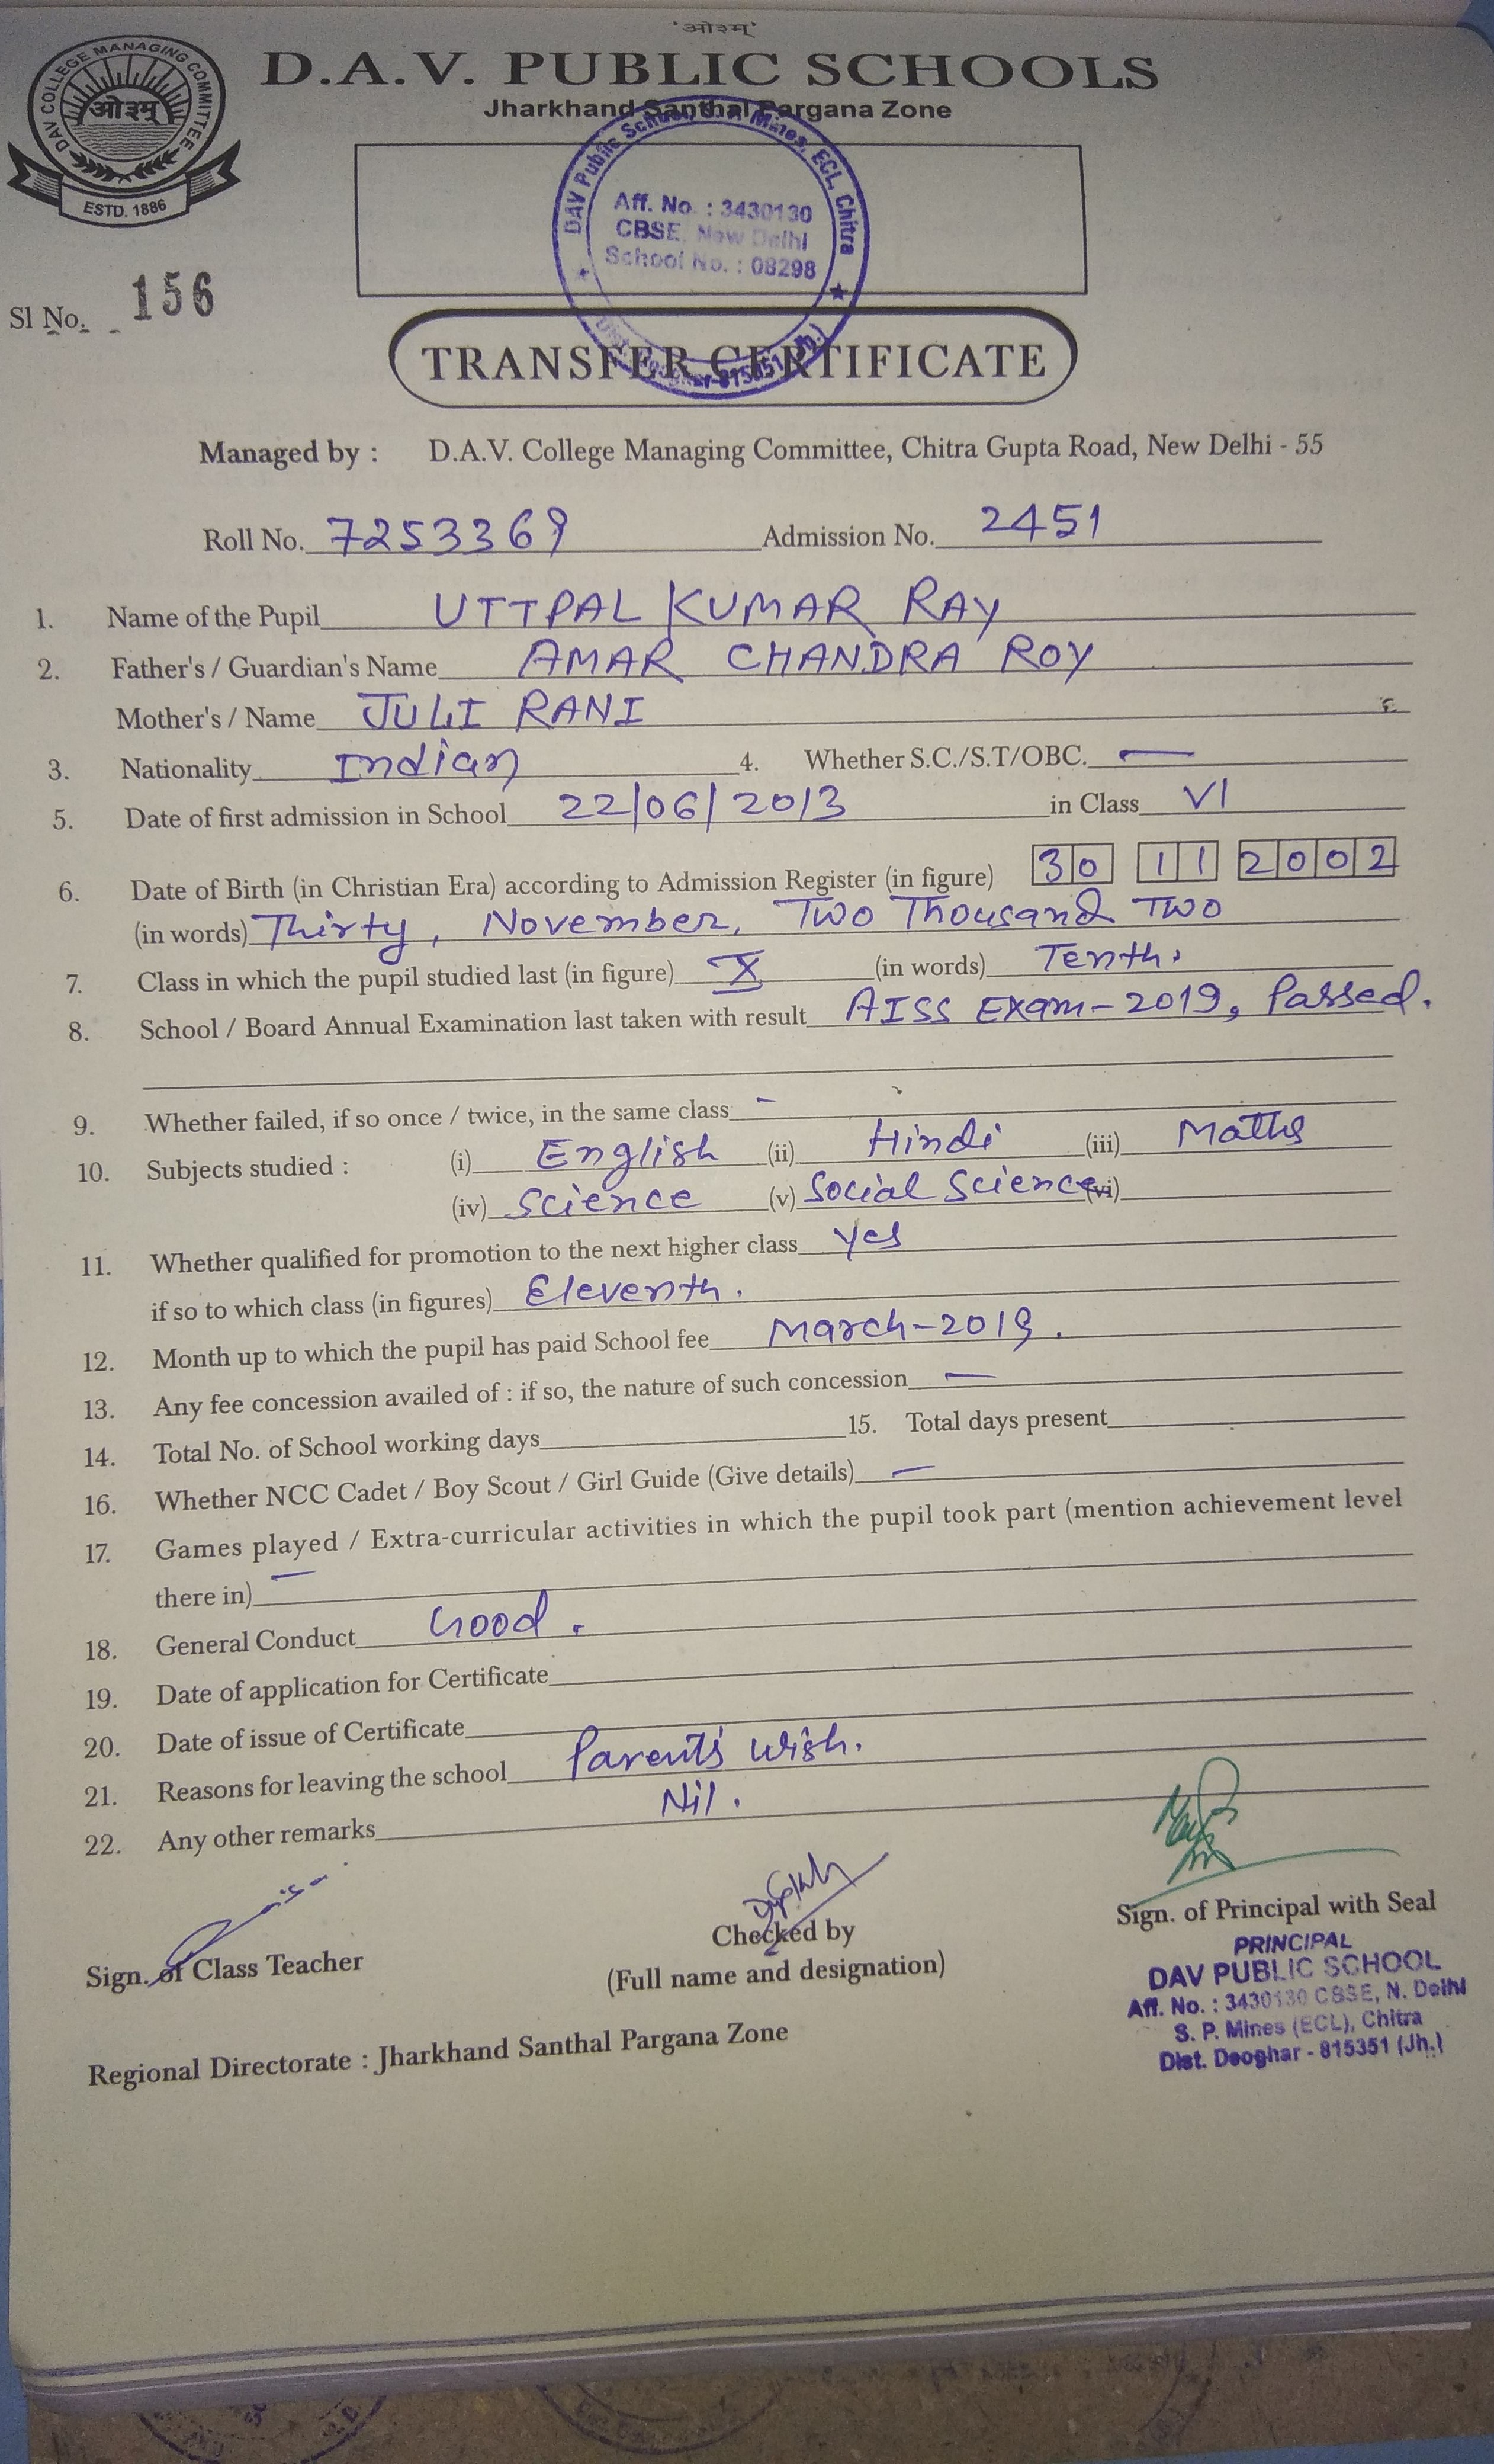 'ओ३म्'
DAV COLLEGE MANAGING COMMITTEE
ओ३म्
ESTD. 1886
D.A.V. PUBLIC SCHOOLS
Jharkhand Santhal Pargana Zone
DAV Public School, S. P. Mines, ECL, Chitra
Aff. No. : 3430130
CBSE, New Delhi
School No. : 08298
Sl No. 156
TRANSFER CERTIFICATE
Managed by : D.A.V. College Managing Committee, Chitra Gupta Road, New Delhi - 55
Roll No. 7253369 Admission No. 2451
1. Name of the Pupil UTTPAL KUMAR RAY
2. Father's / Guardian's Name AMAR CHANDRA ROY
Mother's / Name JULI RANI
3. Nationality Indian 4. Whether S.C./S.T/OBC. —
5. Date of first admission in School 22/06/2013 in Class VI
6. Date of Birth (in Christian Era) according to Admission Register (in figure) 30 11 2002
(in words) Thirty, November, Two Thousand Two
7. Class in which the pupil studied last (in figure) X (in words) Tenth.
8. School / Board Annual Examination last taken with result AISS Exam-2019, Passed.
9. Whether failed, if so once / twice, in the same class -
10. Subjects studied : (i) English (ii) Hindi (iii) Maths
(iv) Science (v) Social Science (vi)
11. Whether qualified for promotion to the next higher class yes
if so to which class (in figures) Eleventh.
12. Month up to which the pupil has paid School fee March-2019.
13. Any fee concession availed of : if so, the nature of such concession —
14. Total No. of School working days 15. Total days present
16. Whether NCC Cadet / Boy Scout / Girl Guide (Give details) —
17. Games played / Extra-curricular activities in which the pupil took part (mention achievement level
there in) —
18. General Conduct Good.
19. Date of application for Certificate
20. Date of issue of Certificate
21. Reasons for leaving the school Parent's wish.
22. Any other remarks Nil.
Sign. of Class Teacher
Checked by
(Full name and designation)
Sign. of Principal with Seal
PRINCIPAL
DAV PUBLIC SCHOOL
Aff. No. : 3430130 CBSE, N. Delhi
S. P. Mines (ECL), Chitra
Dist. Deoghar - 815351 (Jh.)
Regional Directorate : Jharkhand Santhal Pargana Zone